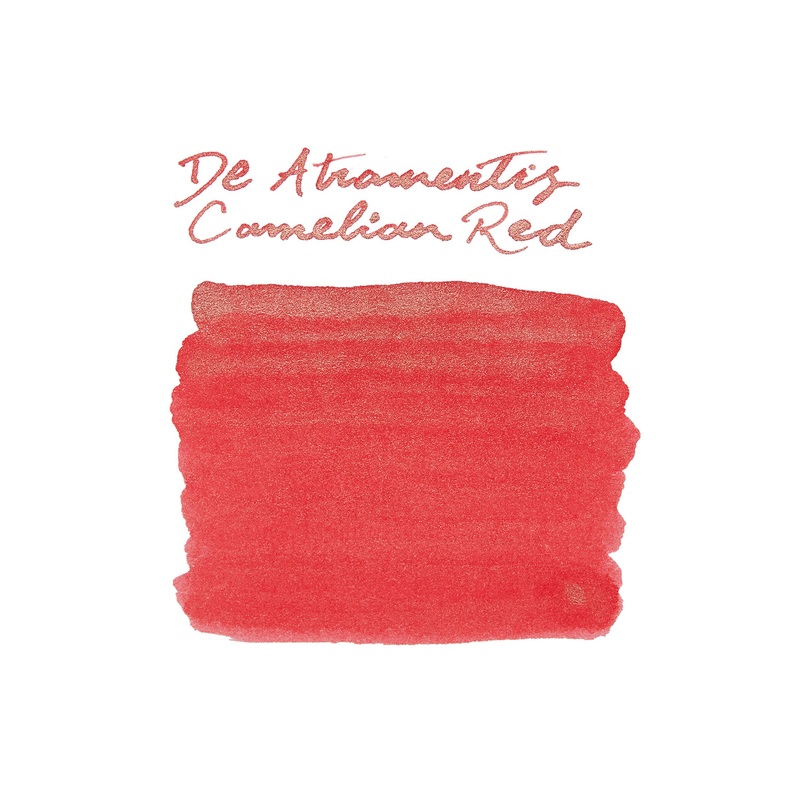 De Atramentis
Camelian Red